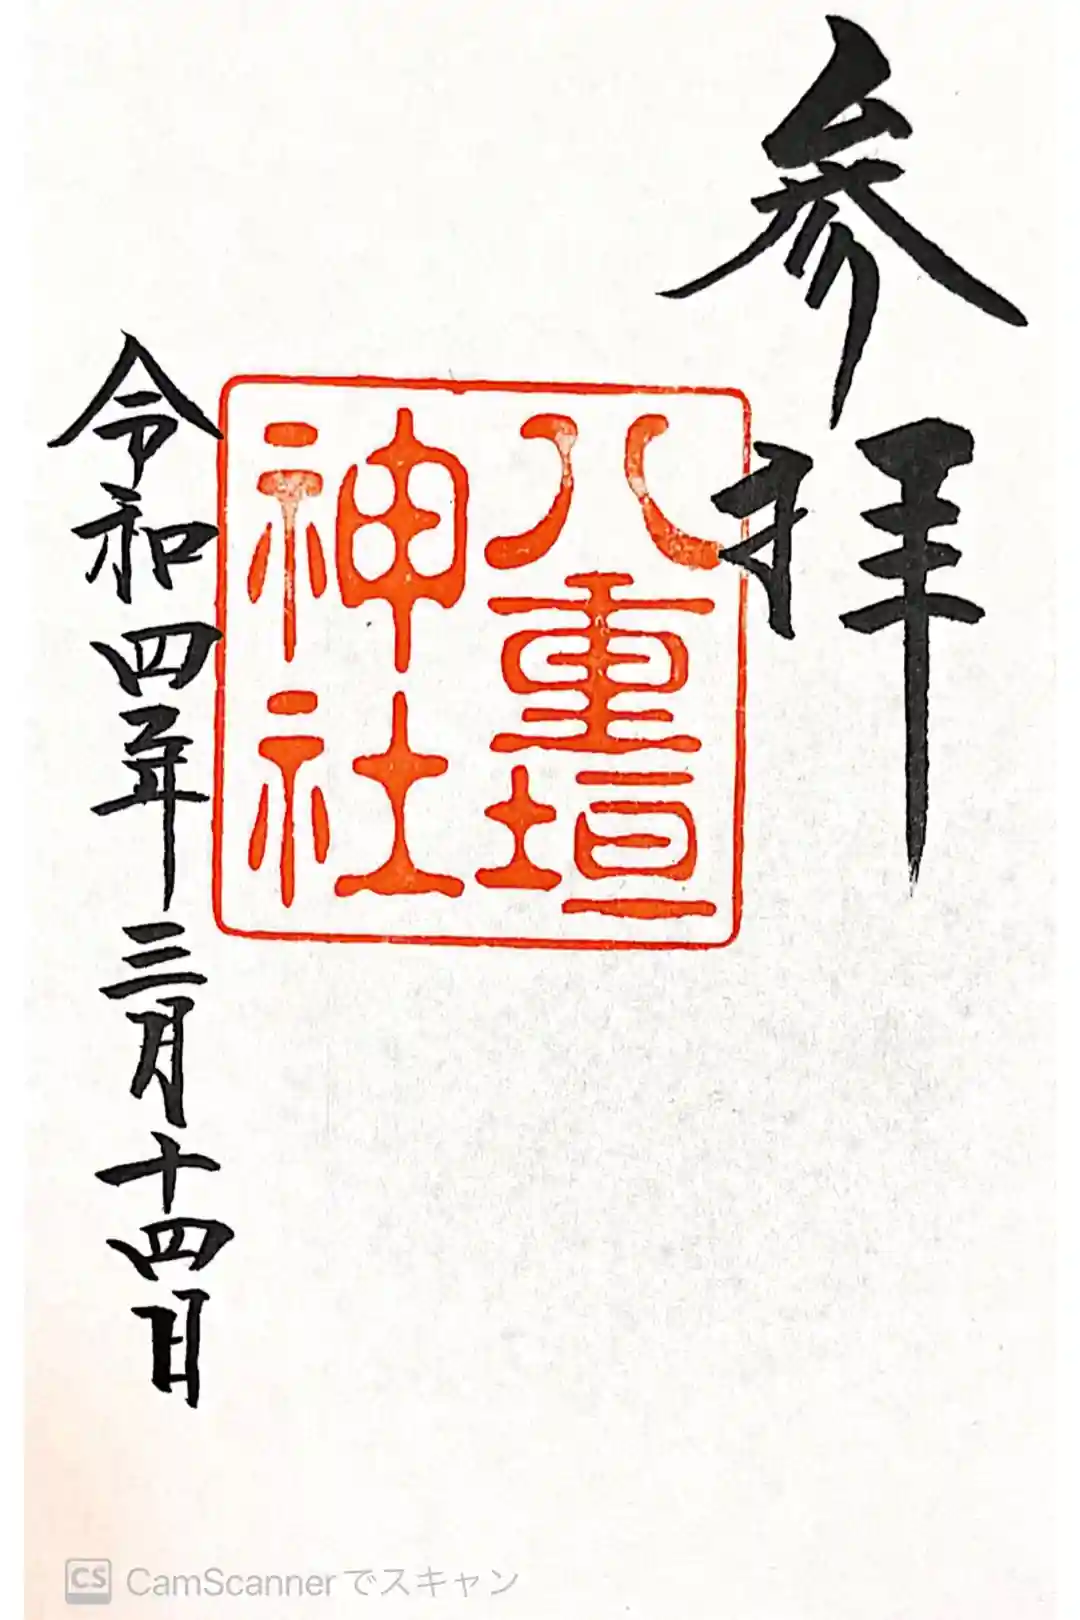 参拝
八重垣
神社
令和四年三月十四日
CS CamScannerでスキャン